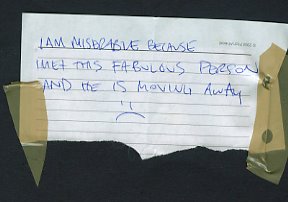 I AM MISERABLE BECAUSE
I MET THIS FABULOUS PERSON
AND HE IS MOVING AWAY